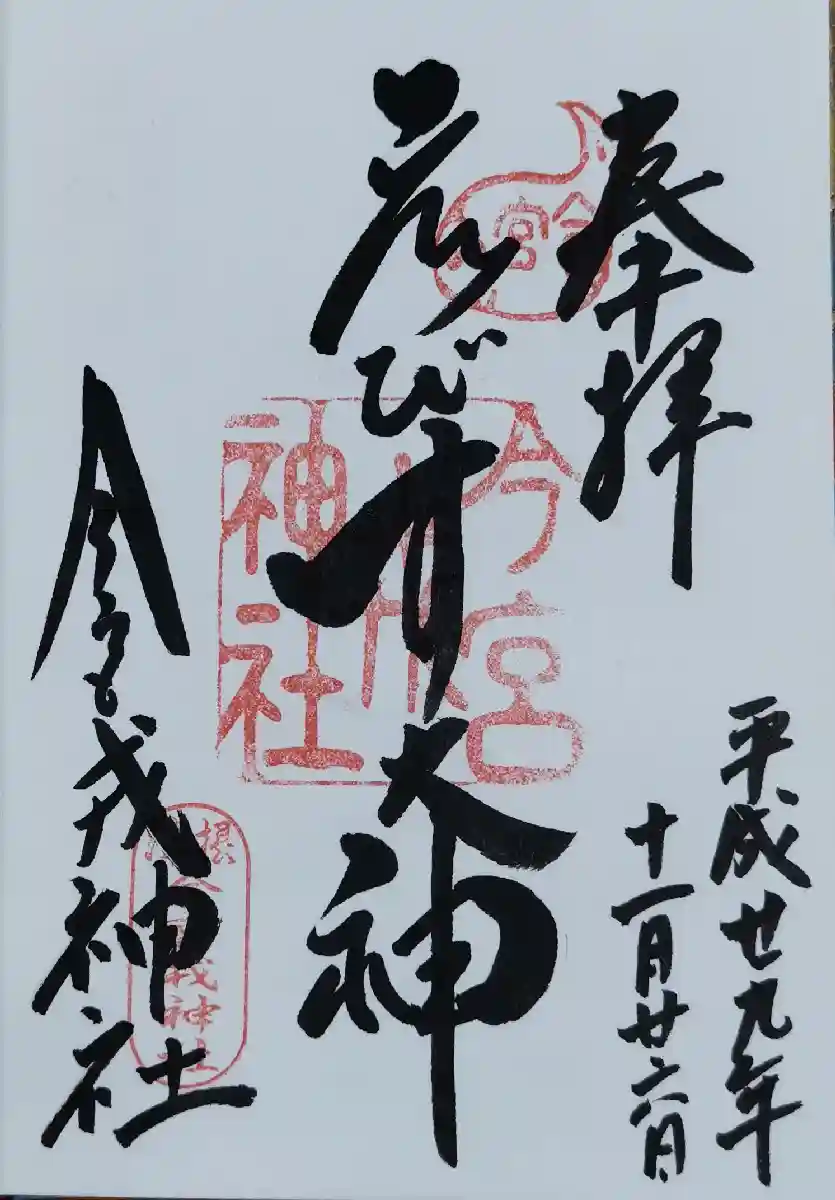 奉拝
平成廿九年
十一月廿六日
えびす大神
今宮戎神社
今宮
今宮戎神社